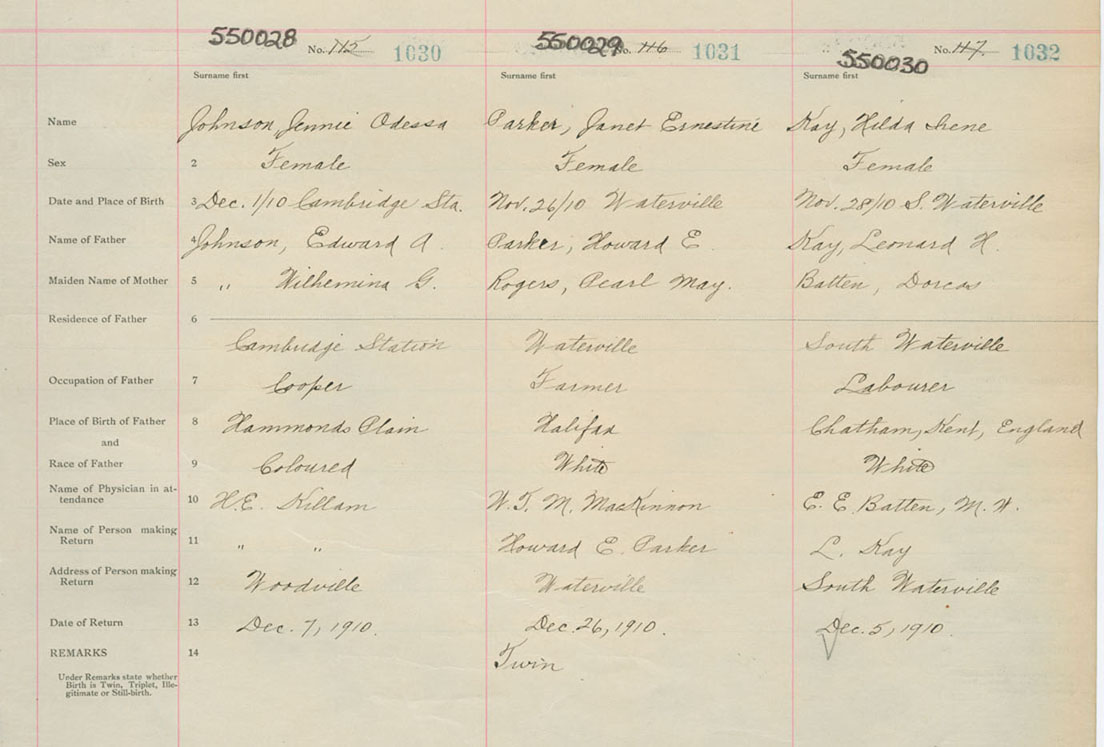 550028 No. 112 1030 550029 No. 116 1031 550030 No. 117 1032
Surname first Surname first Surname first
Name Johnson, Jennie Odessa Parker, Janet Ernestine Kay, Hilda Irene
Sex 2 Female Female Female
Date and Place of Birth 3 Dec. 1/10 Cambridge Sta. Nov. 26/10 Waterville Nov. 28/10 S. Waterville
Name of Father 4 Johnson, Edward A. Parker, Howard E. Kay, Leonard H.
Maiden Name of Mother 5 " Wilhemina G. Rogers, Pearl May. Batten, Dorcas
Residence of Father 6
Cambridge Station Waterville South Waterville
Occupation of Father 7 Cooper Farmer Labourer
Place of Birth of Father 8 Hammonds Plain Halifax Chatham, Kent, England
and
Race of Father 9 Coloured White White
Name of Physician in at-
tendance 10 H. E. Killam W. T. M. MacKinnon E. E. Batten, M. W.
Name of Person making
Return 11 " " Howard E. Parker L. Kay
Address of Person making
Return 12 Woodville Waterville South Waterville
Date of Return 13 Dec. 7, 1910. Dec. 26, 1910. Dec. 5, 1910.
REMARKS 14 Twin
Under Remarks state whether
Birth is Twin, Triplet, Ille-
gitimate or Still-birth.